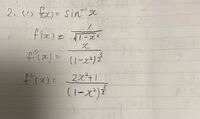 2. (1) f(x) = sin⁻¹x
f'(x) = 1/√(1-x²)
f''(x) = x/(1-x²)^(3/2)
f'''(x) = (2x²+1)/(1-x²)^(5/2)